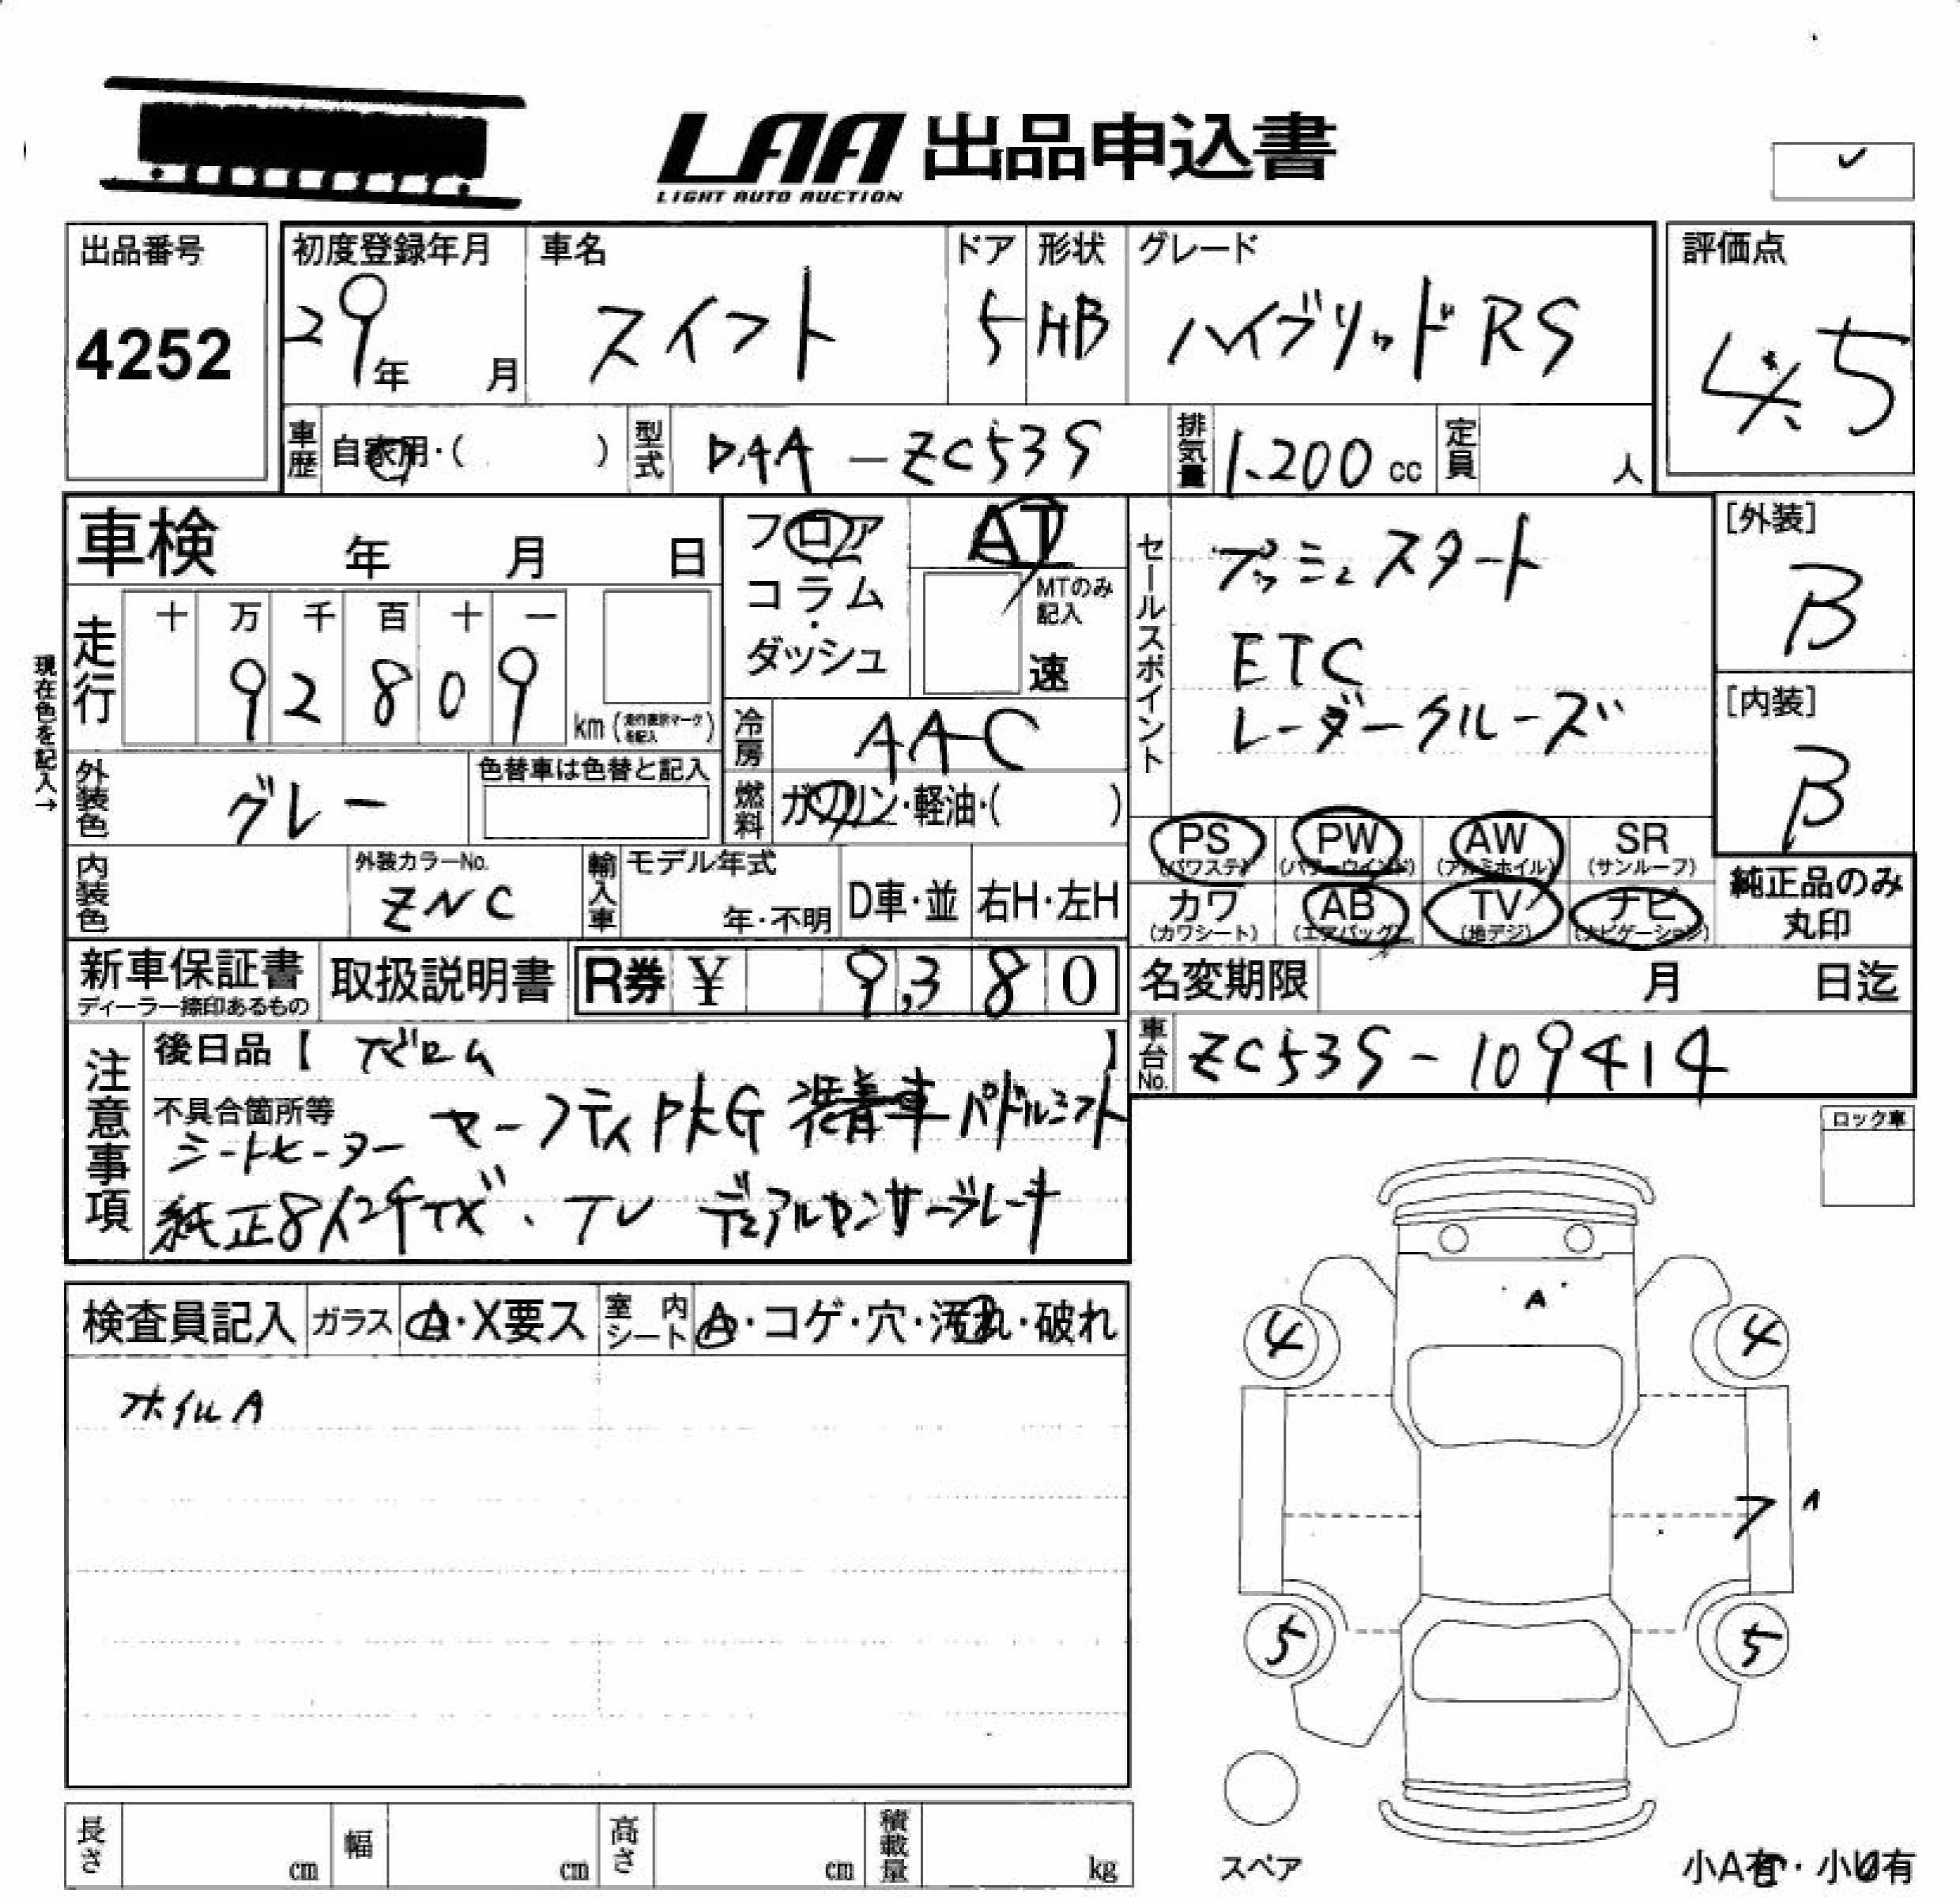 LAA 出品申込書
LIGHT AUTO AUCTION
出品番号
4252
初度登録年月
29年 月
車名
スイフト
ドア
5
形状
HB
グレード
ハイブリッドRS
評価点
4.5
車歴 自家用・( )
型式 DAA-ZC53S
排気量 1.200 cc
定員 人
車検 年 月 日
走行
十 万 千 百 十 一
9 2 8 0 9
km (走行表示マークを記入)
現在色を記入→
フロア
コラム
・
ダッシュ
AT
MTのみ記入
速
冷房 AAC
燃料 ガソリン・軽油・( )
セールスポイント
プッシュスタート
ETC
レーダークルーズ
[外装]
B
[内装]
B
外装色 グレー
色替車は色替と記入
内装色
外装カラーNo.
ZNC
輸入車
モデル年式
年・不明
D車・並
右H・左H
PS (パワステ)
PW (パワーウインド)
AW (アルミホイル)
SR (サンルーフ)
カワ (カワシート)
AB (エアバッグ)
TV (地デジ)
ナビ (ナビゲーション)
純正品のみ
丸印
新車保証書
ディーラー捺印あるもの
取扱説明書
R券 ¥ 9,380
名変期限 月 日迄
車台No. ZC53S-109414
注意事項
後日品【 】
不具合箇所等
セーフティPKG 装着車 パドルシフト
シートヒーター
純正8インチナビ・TV デュアルセンサーブレーキ
ロック車
検査員記入
ガラス A・X要ス
室内シート A・コゲ・穴・汚れ・破れ
ホイルA
A
4
4
ア
5
5
スペア
小A有・小U有
長さ cm
幅 cm
高さ cm
積載量 kg